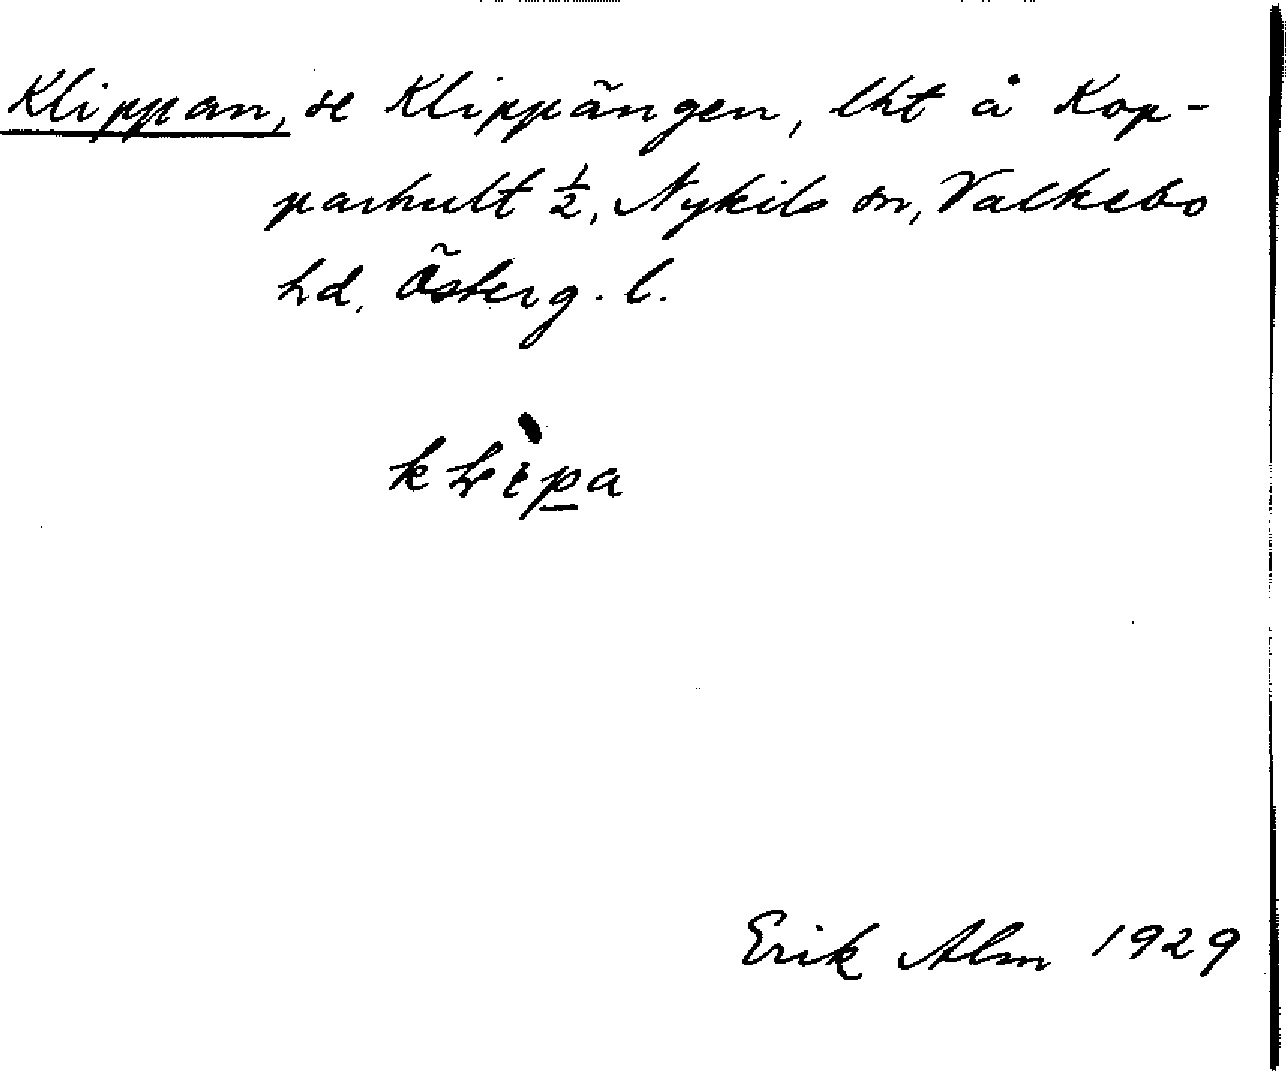 Klippan, se Klippängen, lht å Kop-
parhult ½, Nykils sn, Valkebo
hd. Österg. l.
Erik Alm 1929